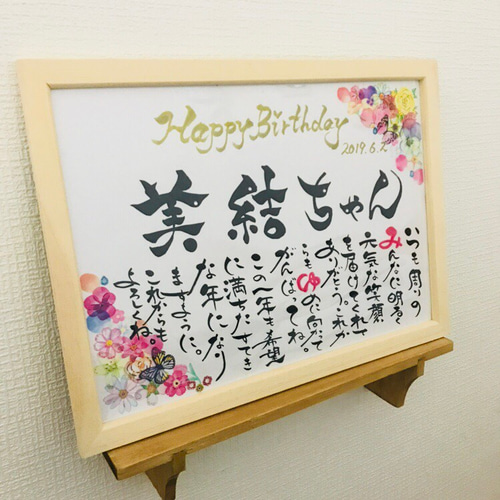 Happy Birthday
2019.6.2
美結ちゃん
いつも周りの
みんなに明るく
元気な笑顔
を届けてくれて
ありがとう。これか
らもゆめに向かって
がんばってね。
この一年も希望
に満ちたすてき
な年になり
ますように。
これからも
よろしくね。